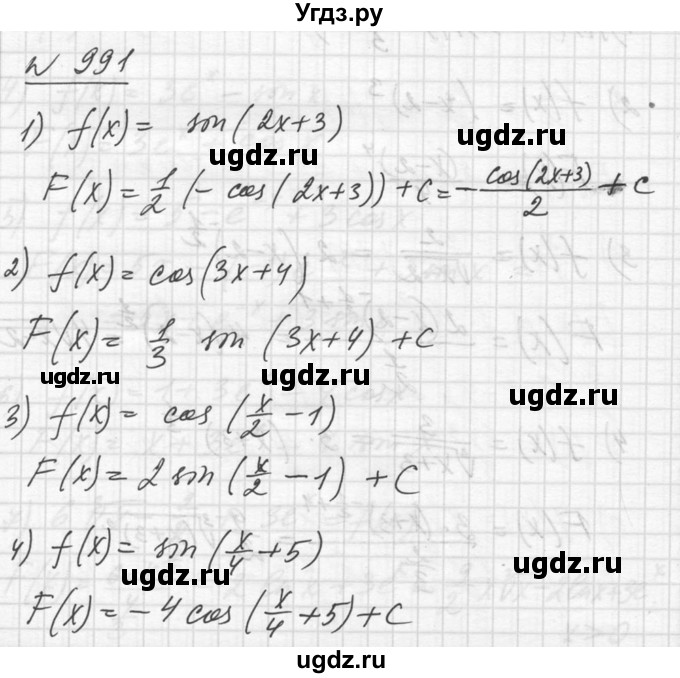 Угдз.ру
№ 991
1) f(x) = sin(2x+3)
ugdz.ru ugdz.ru
F(x) = 1/2 (- cos(2x+3)) + C = - cos(2x+3)/2 + C
2) f(x) = cos(3x+4)
ugdz.ru
F(x) = 1/3 sin (3x+4) + C
ugdz.ru ugdz.ru
3) f(x) = cos (x/2 - 1)
ugdz.ru
F(x) = 2 sin (x/2 - 1) + C
4) f(x) = sin (x/4 + 5)
ugdz.ru ugdz.ru
F(x) = - 4 cos (x/4 + 5) + C
ugdz.ru